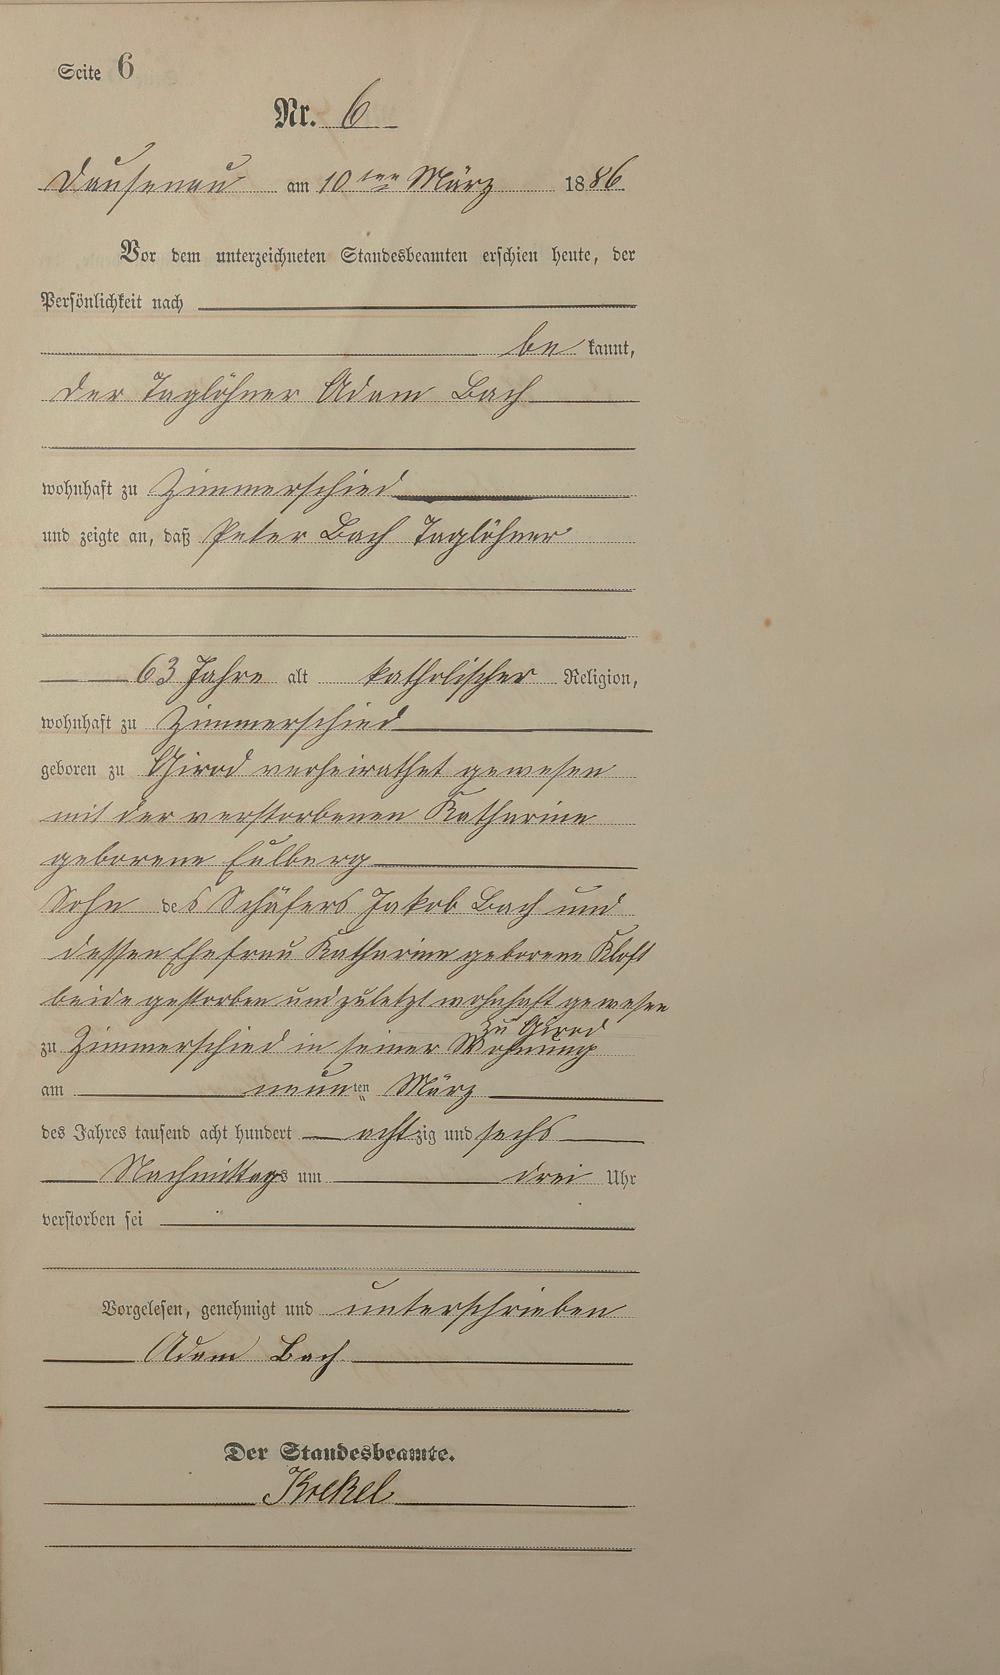 Seite 6
Nr. 6
Dausenau am 10ten März 1886.
Vor dem unterzeichneten Standesbeamten erschien heute, der
Persönlichkeit nach
be kannt,
der Taglöhner Adam Bach
wohnhaft zu Zimmerschied
und zeigte an, daß Peter Bach Taglöhner
63 Jahre alt katholischer Religion,
wohnhaft zu Zimmerschied
geboren zu Girod verheirathet gewesen
mit der verstorbenen Katharine
geborene Eulberg
Sohn des Schäfers Jakob Bach und
dessen Ehefrau Katharine geborene Kloft
beide gestorben und zuletzt wohnhaft gewesen
zu Girod
zu Zimmerschied in seiner Wohnung
am neunten März
des Jahres tausend acht hundert achtzig und sechs
Nachmittags um drei Uhr
verstorben sei
Vorgelesen, genehmigt und unterschrieben
Adam Bach
Der Standesbeamte.
Krekel